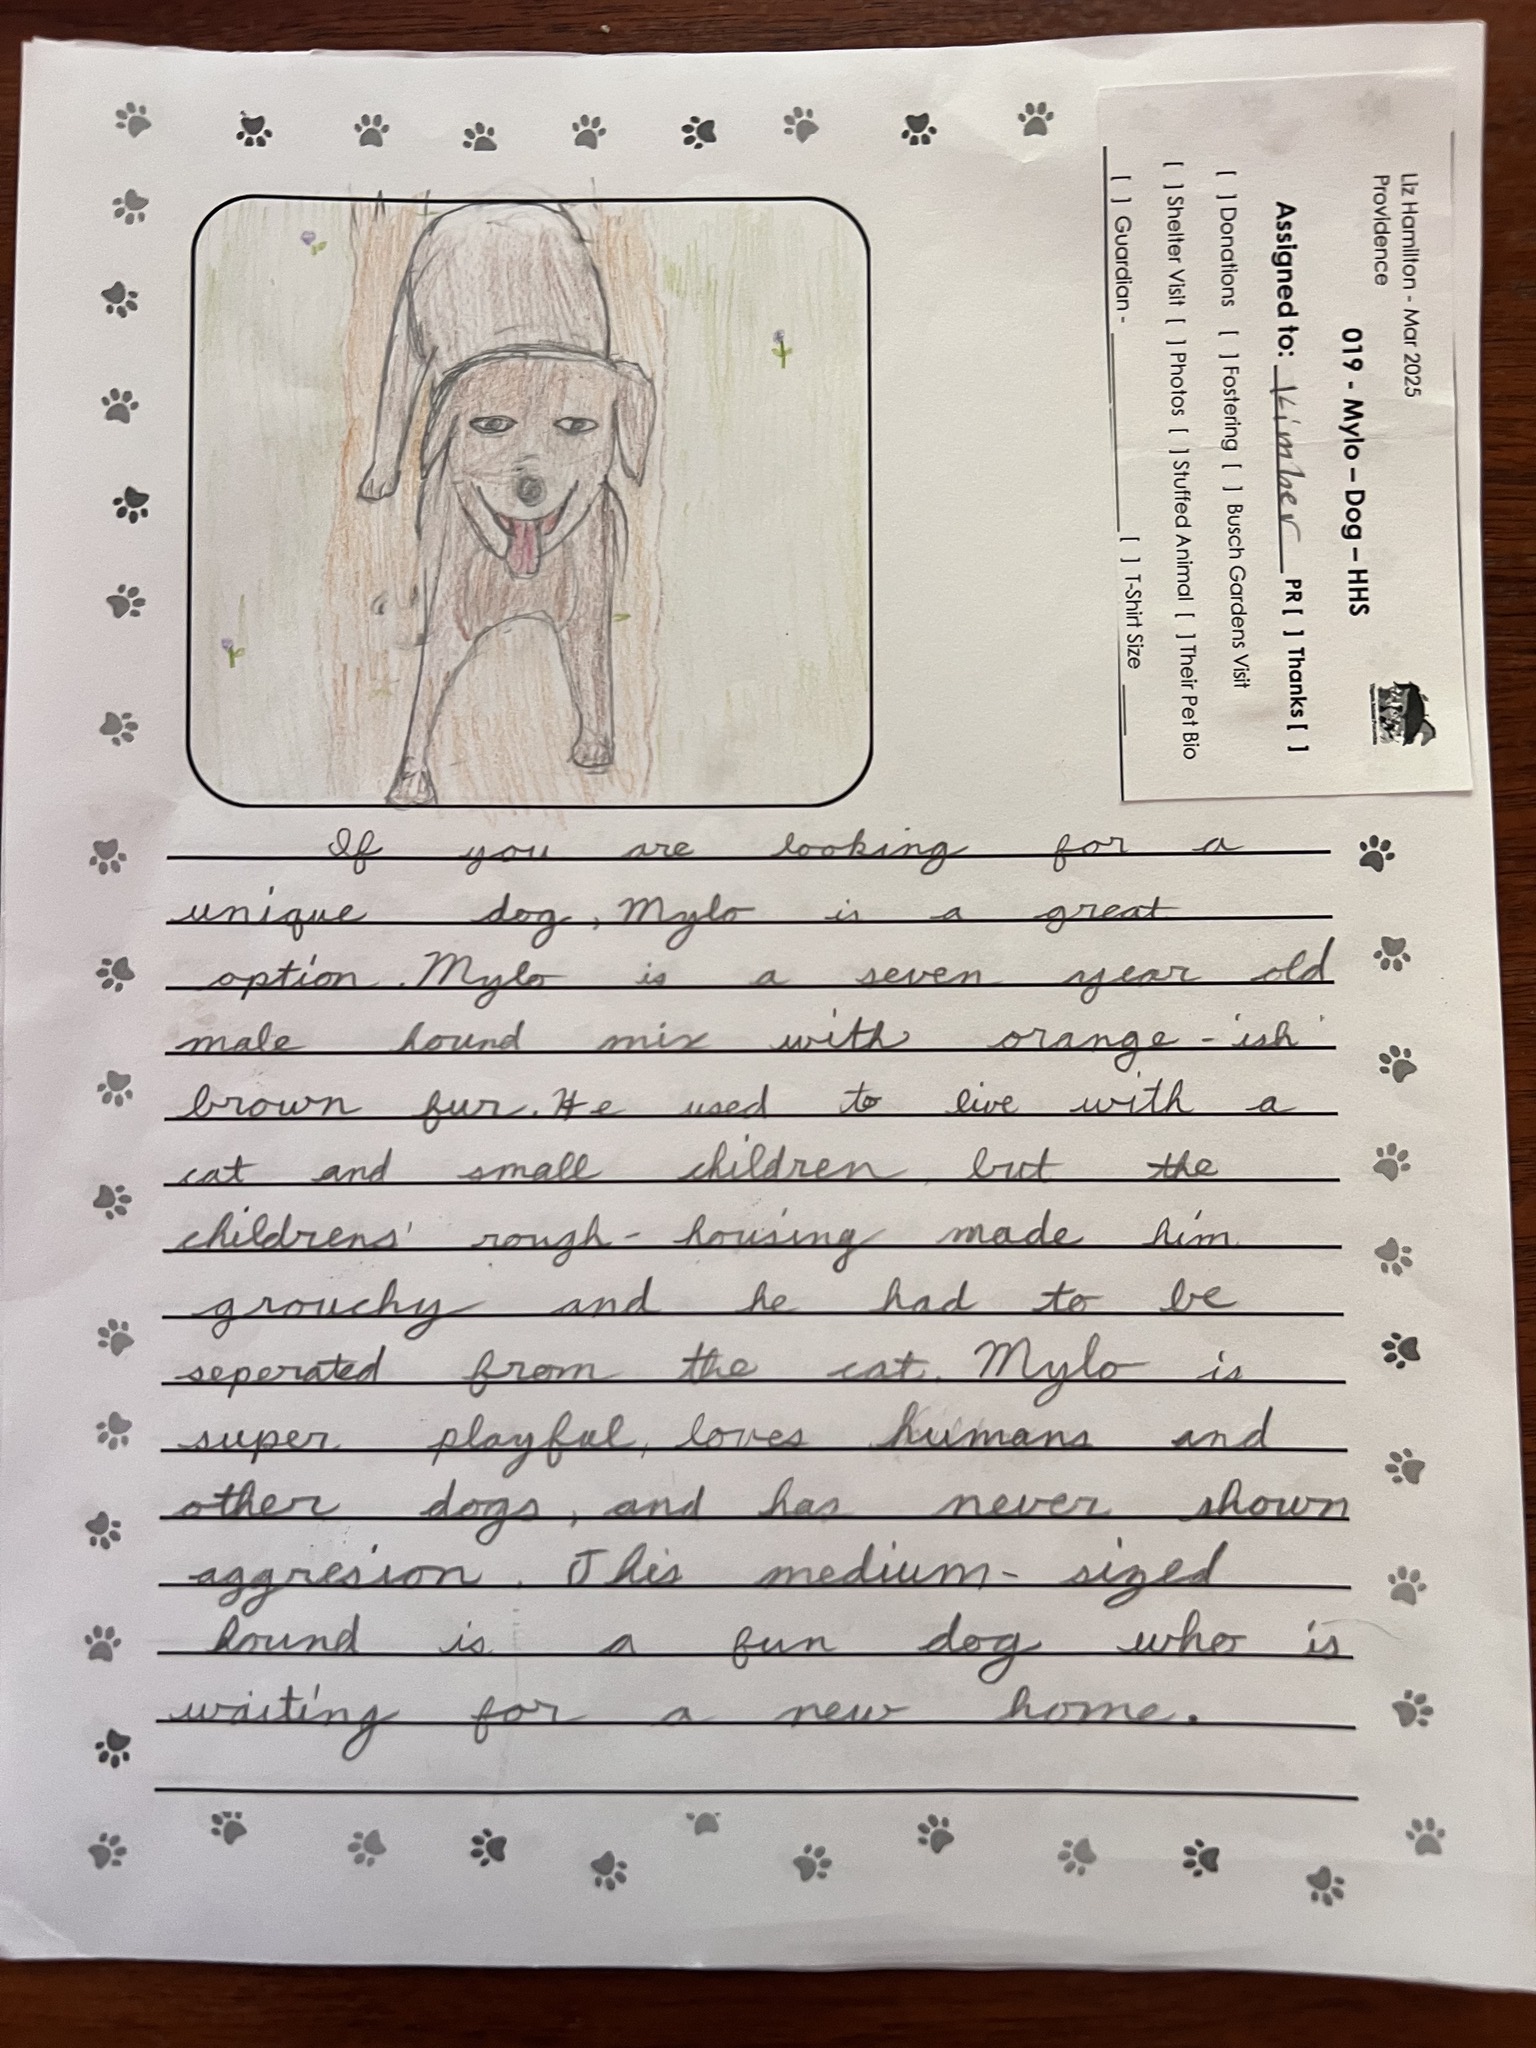 Liz Hamilton - Mar 2025
Providence
019 - Mylo – Dog – HHS
Assigned to: Kimber PR [ ] Thanks [ ]
[ ] Donations [ ] Fostering [ ] Busch Gardens Visit
[ ] Shelter Visit [ ] Photos [ ] Stuffed Animal [ ] Their Pet Bio
[ ] Guardian - ____________ [ ] T-Shirt Size ____
If you are looking for a
unique dog, Mylo is a great
option. Mylo is a seven year old
male hound mix with orange-ish
brown fur. He used to live with a
cat and small children, but the
childrens' rough-housing made him
grouchy and he had to be
seperated from the cat. Mylo is
super playful, loves humans and
other dogs, and has never shown
aggresion. This medium-sized
hound is a fun dog who is
waiting for a new home.